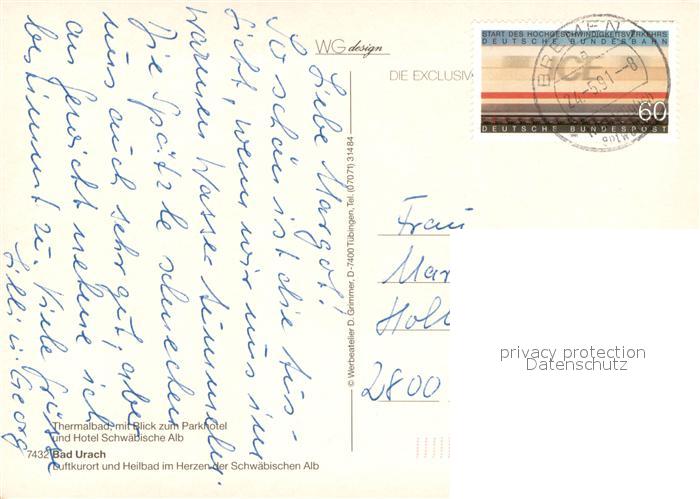 WG design
DIE EXCLUSIV
START DES HOCHGESCHWINDIGKEITSVERKEHRS
DEUTSCHE BUNDESBAHN
ICE
60
DEUTSCHE BUNDESPOST
BREMEN
24.-5.91.-8
Liebe Margot!
So schön ist die Aus-
sicht, wenn wir uns im
warmen Wasser tummeln.
Die Spätzle schmecken
uns auch sehr gut, aber
an Gewicht nehme ich
bestimmt zu. Viele Grüsse
Lilli u. Georg
© Werbeatelier D. Grimmer, D-7400 Tübingen, Tel. (07071) 31484
Frau
Mar
Hol
2800
privacy protection
Datenschutz
Thermalbad, mit Blick zum Parkhotel
und Hotel Schwäbische Alb
7432 Bad Urach
Luftkurort und Heilbad im Herzen der Schwäbischen Alb